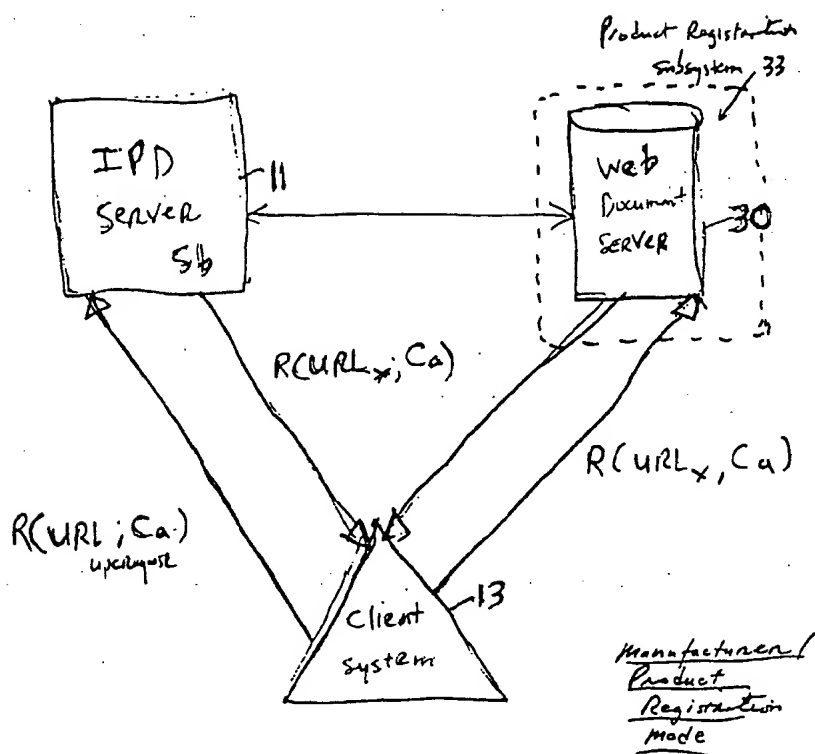 Product Registration
subsystem 33
IPD
SERVER
Sb
11
Web
Document
SERVER
30
R(URL*; Ca)
R(URLx, Ca)
R(URL; Ca)
Client
System
13
Manufacturer/
Product
Registration
Mode